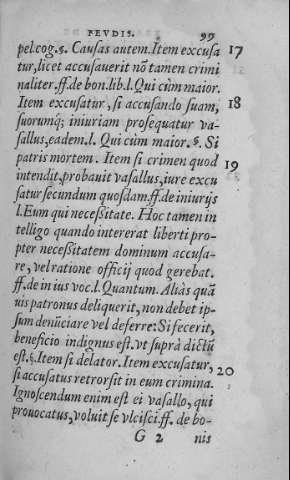 FEVDIS. 99
pel.cog.§. Causas autem. Item excusa 17
tur, licet accusauerit nõ tamen crimi
naliter. ff. de bon. lib. l. Qui cùm maior.
Item excusatur, si accusando suam, 18
suorumq́; iniuriam prosequatur va-
sallus, eadem. l. Qui cùm maior. §. Si
patris mortem. Item si crimen quod 19
intendit, probauit vasallus, iure excu
satur secundum quosdam. ff. de iniurijs
l. Eum qui necessitate. Hoc tamen in
telligo quando intererat liberti pro-
pter necessitatem dominum accusa-
re, vel ratione officij quod gerebat.
ff. de in ius voc. l. Quantum. Aliàs quã
uis patronus deliquerit, non debet ip-
sum denũciare vel deferre: Si fecerit,
beneficio indignus est. vt suprà dictũ
est. §. Item si delator. Item excusatur, 20
si accusatus retrorsit in eum crimina.
Ignoscendum enim est ei vasallo, qui
prouocatus, voluit se vlcisci. ff. de bo-
G 2 nis